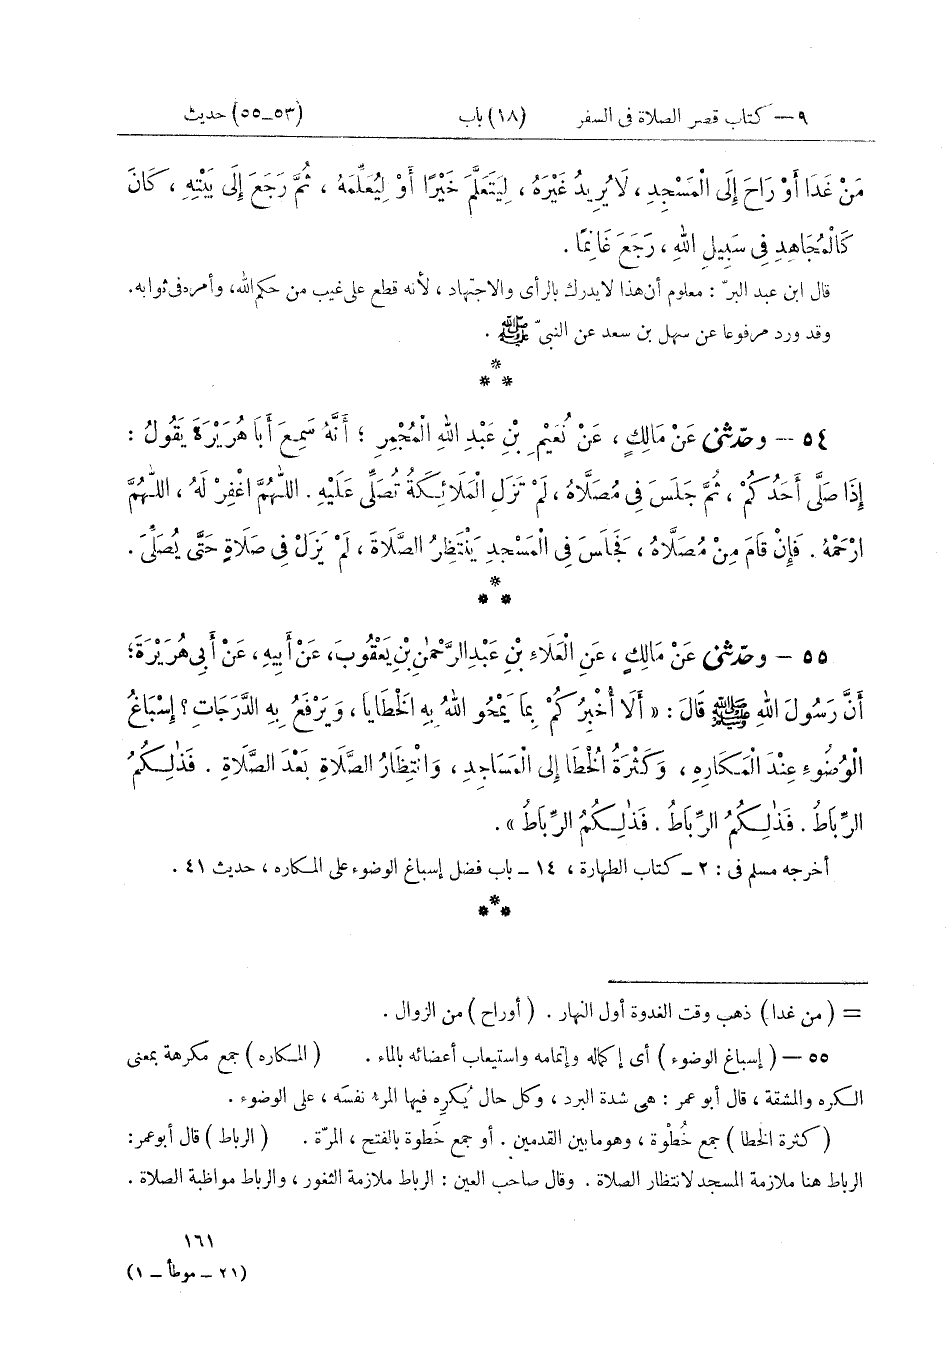 ٩ — كتاب قصر الصلاة فى السفر (١٨) باب (٥٣_٥٥) حديث
مَنْ غَدَا أَوْ رَاحَ إِلَى الْمَسْجِدِ ، لَا يُرِيدُ غَيْرَهُ ، لِيَتَعَلَّمَ خَيْرًا أَوْ لِيُعَلِّمَهُ ، ثُمَّ رَجَعَ إِلَى بَيْتِهِ ، كَانَ
كَالْمُجَاهِدِ فِى سَبِيلِ اللهِ ، رَجَعَ غَانِمًا .
قال ابن عبد البرّ : معلوم أن هذا لا يدرك بالرأى والاجتهاد ، لأنه قطع على غيب من حكم الله، وأمره فى ثوابه.
وقد ورد مرفوعا عن سهل بن سعد عن النبىّ ﷺ .
*
* *
٥٤ — وحدّثنى عَنْ مَالِكٍ ، عَنْ نُعَيْمِ بْنِ عَبْدِ اللهِ الْمُجْمِرِ ؛ أَنَّهُ سَمِعَ أَبَا هُرَيْرَةَ يَقُولُ :
إِذَا صَلَّى أَحَدُكُمْ ، ثُمَّ جَلَسَ فِى مُصَلَّاهُ ، لَمْ تَزَلِ الْمَلَائِكَةُ تُصَلِّى عَلَيْهِ . اللّٰهُمَّ اغْفِرْ لَهُ ، اللّٰهُمَّ
ارْحَمْهُ . فَإِنْ قَامَ مِنْ مُصَلَّاهُ ، فَجَلَسَ فِى الْمَسْجِدِ يَنْتَظِرُ الصَّلَاةَ ، لَمْ يَزَلْ فِى صَلَاةٍ حَتَّى يُصَلِّىَ .
*
* *
٥٥ — وحدّثنى عَنْ مَالِكٍ ، عَنِ الْعَلَاءِ بْنِ عَبْدِ الرَّحْمٰنِ بْنِ يَعْقُوبَ، عَنْ أَبِيهِ، عَنْ أَبِى هُرَيْرَةَ؛
أَنَّ رَسُولَ اللهِ ﷺ قَالَ : « أَلَا أُخْبِرُكُمْ بِمَا يَمْحُو اللهُ بِهِ الْخَطَايَا ، وَيَرْفَعُ بِهِ الدَّرَجَاتِ ؟ إِسْبَاغُ
الْوُضُوءِ عِنْدَ الْمَكَارِهِ ، وَكَثْرَةُ الْخُطَا إِلَى الْمَسَاجِدِ ، وَانْتِظَارُ الصَّلَاةِ بَعْدَ الصَّلَاةِ . فَذٰلِكُمُ
الرِّبَاطُ . فَذٰلِكُمُ الرِّبَاطُ . فَذٰلِكُمُ الرِّبَاطُ » .
أخرجه مسلم فى : ٢ ـ كتاب الطهارة ، ١٤ ـ باب فضل إسباغ الوضوء على المكاره ، حديث ٤١ .
*
* *
= ( من غدا ) ذهب وقت الغدوة أول النهار . ( أو راح ) من الزوال .
٥٥ — ( إسباغ الوضوء ) أى إكماله وإتمامه واستيعاب أعضائه بالماء . ( المكاره ) جمع مكرهة بمعنى
الكره والمشقة ، قال أبو عمر : هى شدة البرد ، وكل حال يُكرِه فيها المرء نفسَه ، على الوضوء .
( كثرة الخطا ) جمع خُطْوة ، وهو ما بين القدمين . أو جمع خَطوة بالفتح ، المرّة . ( الرباط ) قال أبو عمر:
الرباط هنا ملازمة المسجد لانتظار الصلاة . وقال صاحب العين : الرباط ملازمة الثغور ، والرباط مواظبة الصلاة .
١٦١
(٢١ ـ موطأ ـ ١)